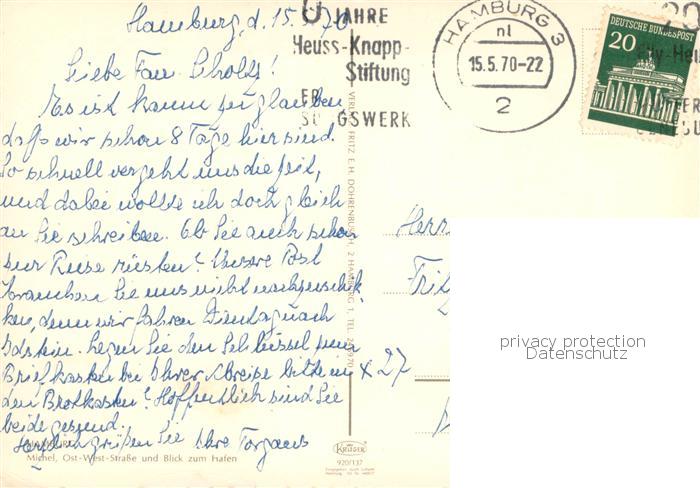 Hamburg, d. 15.5.70
Liebe Frau Scholz!
Es ist kaum zu glauben
daß wir schon 8 Tage hier sind.
So schnell vergeht uns die Zeit,
und dabei wollte ich doch gleich
an Sie schreiben. Ob Sie auch schon
zur Reise rüsten? Unsere Post
brauchen Sie uns nicht nachzuschik-
ken, denn wir fahren Dienstag nach
Idstein. Legen Sie den Schlüssel zum
Briefkasten bei Ihrer Abreise bitte in
den Brotkasten? Hoffentlich sind Sie
beide gesund.
Herzlich grüßen Sie Ihre
HAMBURG
Michel, Ost-West-Straße und Blick zum Hafen
JAHRE
Heuss-Knapp-
Stiftung
SWERK
HAMBURG 3
nl
15.5.70-22
2
DEUTSCHE BUNDESPOST
20
VERLAG FRITZ E. H. DOHRENBUSCH, 2 HAMBURG 1, TEL.
Herrn
Fritz
× 27
KRÜGER
920/137
privacy protection
Datenschutz